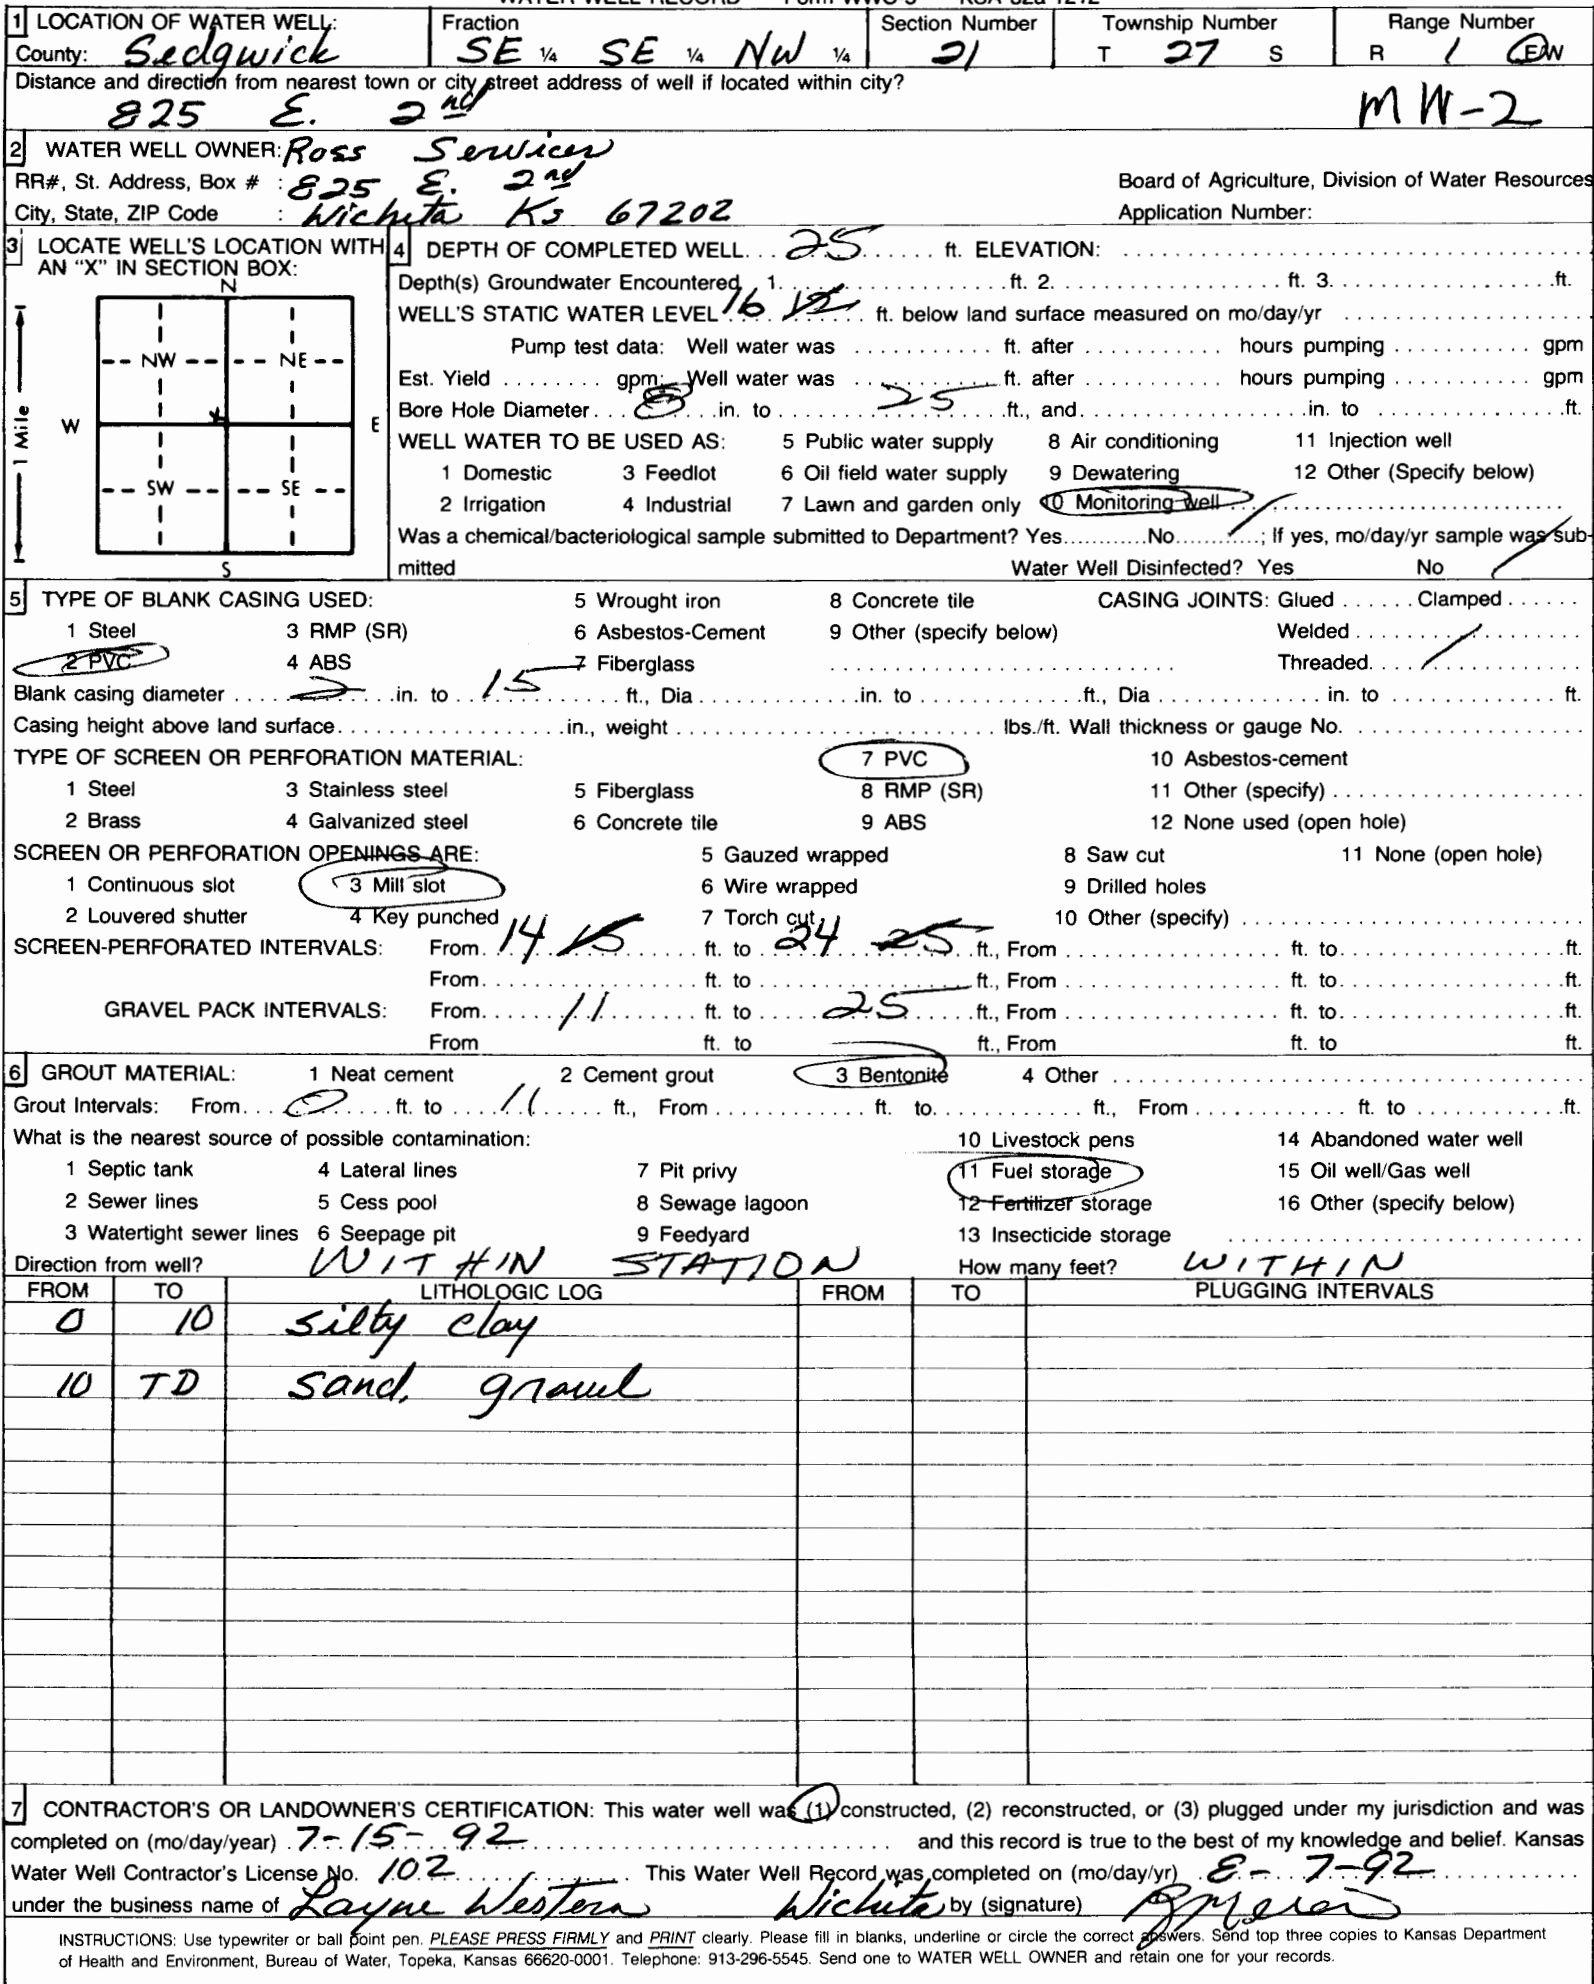 WATER WELL RECORD Form WWC-5 KSA 82a-1212
1 LOCATION OF WATER WELL: Fraction Section Number Township Number Range Number
County: Sedgwick SE ¼ SE ¼ NW ¼ 21 T 27 S R 1 E/W
Distance and direction from nearest town or city street address of well if located within city?
825 E. 2nd MW-2
2 WATER WELL OWNER: Ross Services
RR#, St. Address, Box # : 825 E. 2nd Board of Agriculture, Division of Water Resources
City, State, ZIP Code : Wichita Ks 67202 Application Number:
3 LOCATE WELL'S LOCATION WITH AN "X" IN SECTION BOX:
N
NW NE
W E
SW SE
S
1 Mile
4 DEPTH OF COMPLETED WELL... 25 ... ft. ELEVATION: ...
Depth(s) Groundwater Encountered 1. ... ft. 2. ... ft. 3. ... ft.
WELL'S STATIC WATER LEVEL 16 ... ft. below land surface measured on mo/day/yr ...
Pump test data: Well water was ... ft. after ... hours pumping ... gpm
Est. Yield ... gpm: Well water was ... ft. after ... hours pumping ... gpm
Bore Hole Diameter... 8 ... in. to ... 25 ... ft., and ... in. to ... ft.
WELL WATER TO BE USED AS: 5 Public water supply 8 Air conditioning 11 Injection well
1 Domestic 3 Feedlot 6 Oil field water supply 9 Dewatering 12 Other (Specify below)
2 Irrigation 4 Industrial 7 Lawn and garden only 10 Monitoring well ...
Was a chemical/bacteriological sample submitted to Department? Yes...........No...........; If yes, mo/day/yr sample was sub-
mitted Water Well Disinfected? Yes No
5 TYPE OF BLANK CASING USED: 5 Wrought iron 8 Concrete tile CASING JOINTS: Glued ...... Clamped ......
1 Steel 3 RMP (SR) 6 Asbestos-Cement 9 Other (specify below) Welded ...
2 PVC 4 ABS 7 Fiberglass ... Threaded...
Blank casing diameter ... 2 ... in. to ... 15 ... ft., Dia ... in. to ... ft., Dia ... in. to ... ft.
Casing height above land surface ... in., weight ... lbs./ft. Wall thickness or gauge No. ...
TYPE OF SCREEN OR PERFORATION MATERIAL: 7 PVC 10 Asbestos-cement
1 Steel 3 Stainless steel 5 Fiberglass 8 RMP (SR) 11 Other (specify) ...
2 Brass 4 Galvanized steel 6 Concrete tile 9 ABS 12 None used (open hole)
SCREEN OR PERFORATION OPENINGS ARE: 5 Gauzed wrapped 8 Saw cut 11 None (open hole)
1 Continuous slot 3 Mill slot 6 Wire wrapped 9 Drilled holes
2 Louvered shutter 4 Key punched 7 Torch cut 10 Other (specify) ...
SCREEN-PERFORATED INTERVALS: From 14 15 ... ft. to 24 25 ... ft., From ... ft. to ... ft.
From ... ft. to ... ft., From ... ft. to ... ft.
GRAVEL PACK INTERVALS: From ... 11 ... ft. to ... 25 ... ft., From ... ft. to ... ft.
From ft. to ft., From ft. to ft.
6 GROUT MATERIAL: 1 Neat cement 2 Cement grout 3 Bentonite 4 Other ...
Grout Intervals: From ... 0 ... ft. to ... 11 ... ft., From ... ft. to ... ft., From ... ft. to ... ft.
What is the nearest source of possible contamination: 10 Livestock pens 14 Abandoned water well
1 Septic tank 4 Lateral lines 7 Pit privy 11 Fuel storage 15 Oil well/Gas well
2 Sewer lines 5 Cess pool 8 Sewage lagoon 12 Fertilizer storage 16 Other (specify below)
3 Watertight sewer lines 6 Seepage pit 9 Feedyard 13 Insecticide storage ...
Direction from well? WITHIN STATION How many feet? WITHIN
FROM TO LITHOLOGIC LOG FROM TO PLUGGING INTERVALS
0 10 silty clay
10 TD sand, gravel
7 CONTRACTOR'S OR LANDOWNER'S CERTIFICATION: This water well was (1) constructed, (2) reconstructed, or (3) plugged under my jurisdiction and was
completed on (mo/day/year) 7-15-92 ... and this record is true to the best of my knowledge and belief. Kansas
Water Well Contractor's License No. 102 ... This Water Well Record was completed on (mo/day/yr) 8-7-92
under the business name of Layne Western Wichita by (signature)
INSTRUCTIONS: Use typewriter or ball point pen. PLEASE PRESS FIRMLY and PRINT clearly. Please fill in blanks, underline or circle the correct answers. Send top three copies to Kansas Department
of Health and Environment, Bureau of Water, Topeka, Kansas 66620-0001. Telephone: 913-296-5545. Send one to WATER WELL OWNER and retain one for your records.